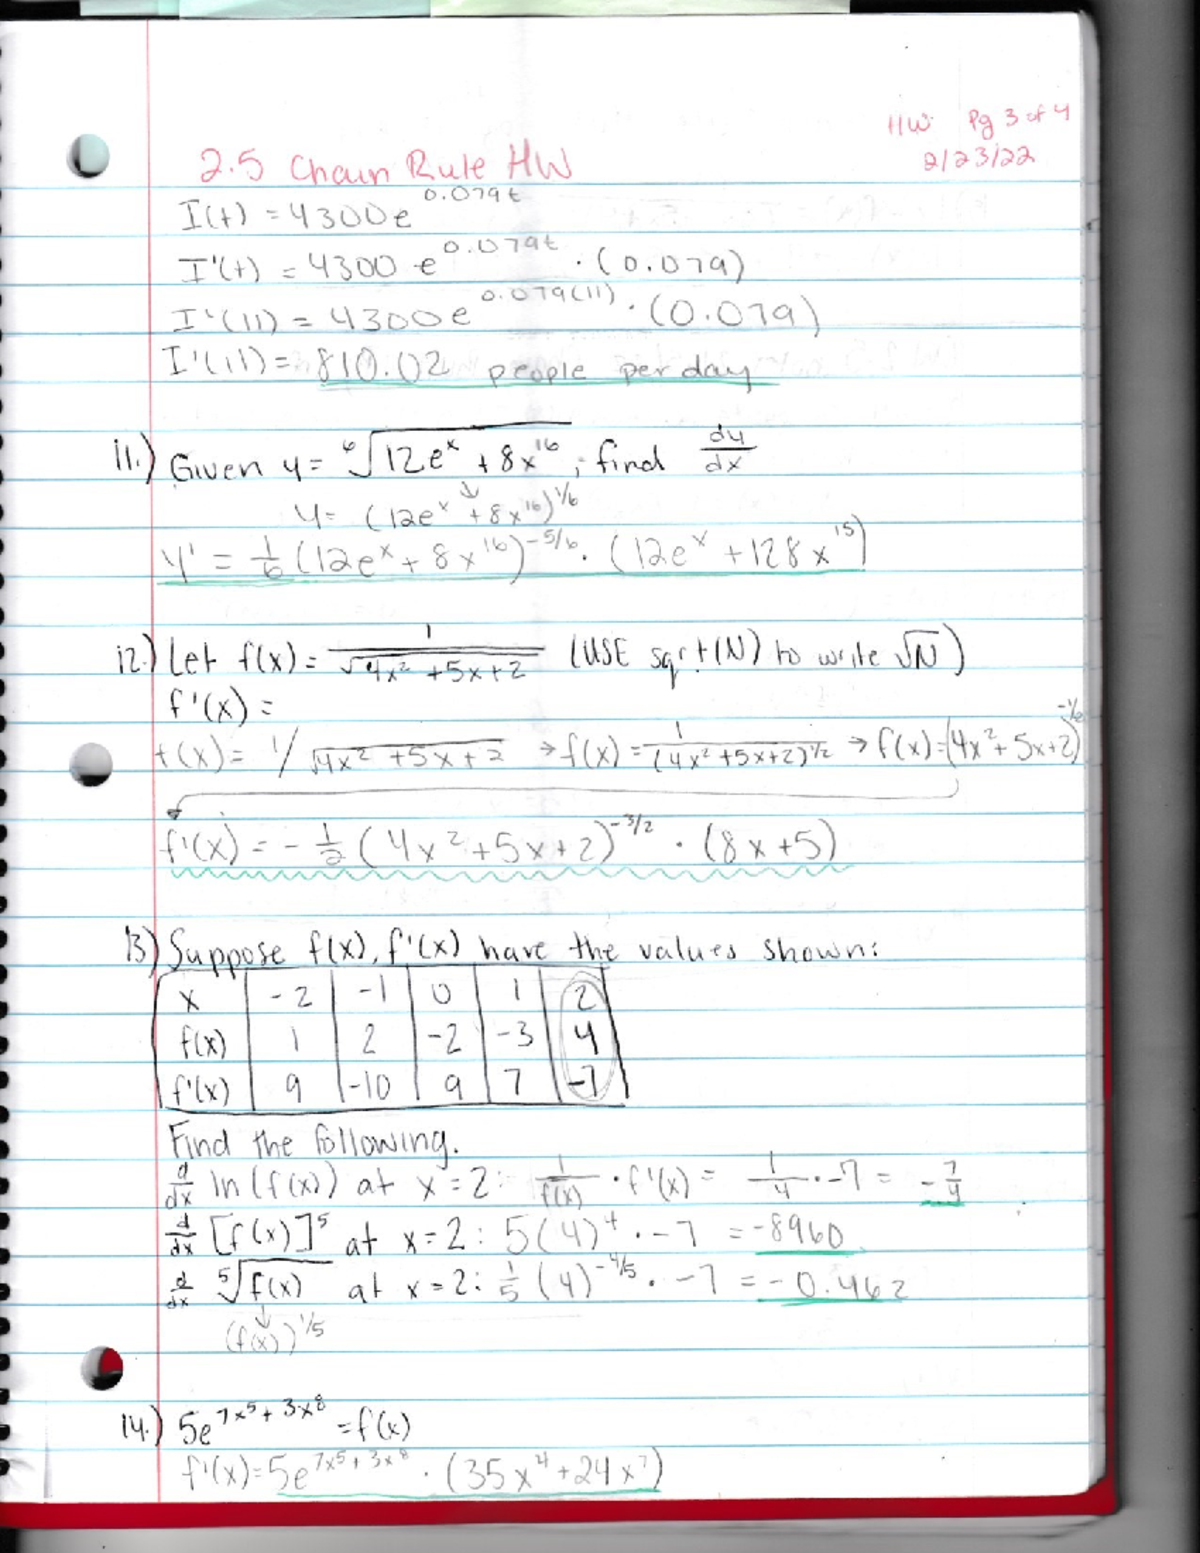 HW Pg 3 of 4
2/23/22
2.5 Chain Rule HW
I(t) = 4300e^0.079t
I'(t) = 4300 e^0.079t · (0.079)
I'(11) = 4300e^0.079(11) · (0.079)
I'(11) = 810.02 people per day
11.) Given y = ⁶√(12e^x + 8x^16), find dy/dx
y = (12e^x + 8x^16)^1/6
y' = 1/6 (12e^x + 8x^16)^-5/6 · (12e^x + 128x^15)
12.) Let f(x) = 1/√(4x² + 5x + 2) (USE sqrt(N) to write √N)
f'(x) =
f(x) = 1/√(4x² + 5x + 2) → f(x) = 1/(4x² + 5x + 2)^1/2 → f(x) = (4x² + 5x + 2)^-1/2
f'(x) = - 1/2 (4x² + 5x + 2)^-3/2 · (8x + 5)
13) Suppose f(x), f'(x) have the values shown:
x -2 -1 0 1 2
f(x) 1 2 -2 -3 4
f'(x) 9 -10 9 7 -7
Find the following.
d/dx ln(f(x)) at x = 2: 1/f(x) · f'(x) = 1/4 · -7 = -7/4
d/dx [f(x)]^5 at x = 2: 5(4)^4 · -7 = -8960
d/dx ⁵√f(x) at x = 2: 1/5 (4)^-4/5 · -7 = -0.462
↓
(f(x))^1/5
14.) 5e^7x^5 + 3x^8 = f(x)
f'(x) = 5e^7x^5 + 3x^8 · (35x^4 + 24x^7)